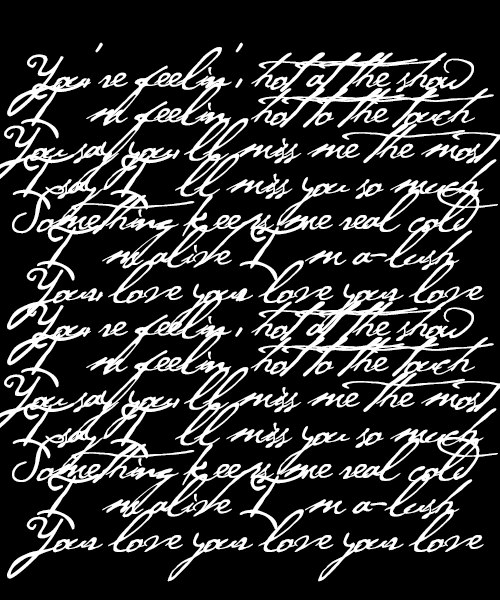 You're feelin' hot at the show
I'm feelin' hot to the touch
You say you'll miss me the most
I say I'll miss you so much
Something keeps me real cold
I'm alive I'm a-lush
Your love your love your love
You're feelin' hot at the show
I'm feelin' hot to the touch
You say you'll miss me the most
I say I'll miss you so much
Something keeps me real cold
I'm alive I'm a-lush
Your love your love your love